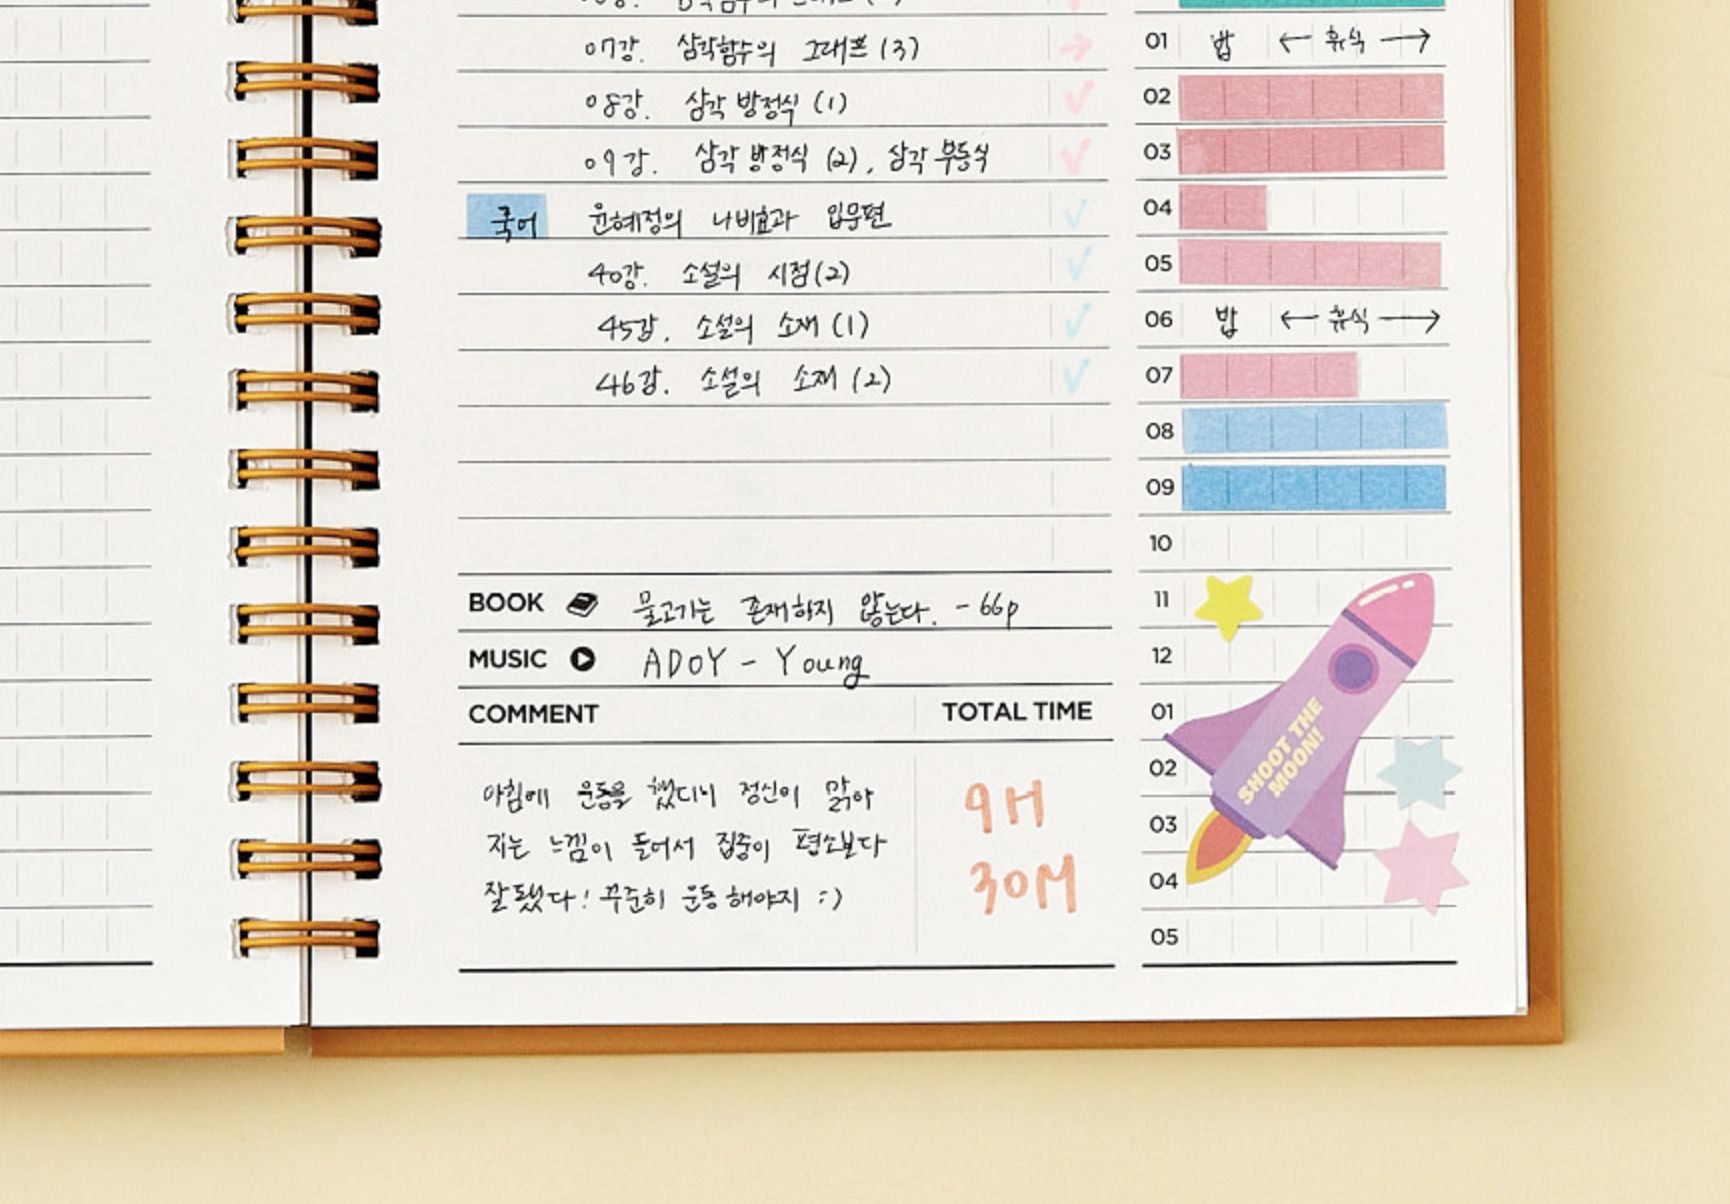 07강. 삼각함수의 그래프 (3)
08강. 삼각 방정식 (1)
09강. 삼각 방정식 (2), 삼각 부등식
국어 윤혜정의 나비효과 입문편
40강. 소설의 시점(2)
45강. 소설의 소재 (1)
46강. 소설의 소재 (2)
BOOK 물고기는 존재하지 않는다. - 66p
MUSIC ADOY - Young
COMMENT
아침에 운동을 했더니 정신이 맑아
지는 느낌이 들어서 집중이 평소보다
잘됐다! 꾸준히 운동해야지 :)
TOTAL TIME
9H
30M
01 밥 ← 휴식 →
02
03
04
05
06 밥 ← 휴식 →
07
08
09
10
11
12
01
02
03
04
05
SHOOT THE
MOON!